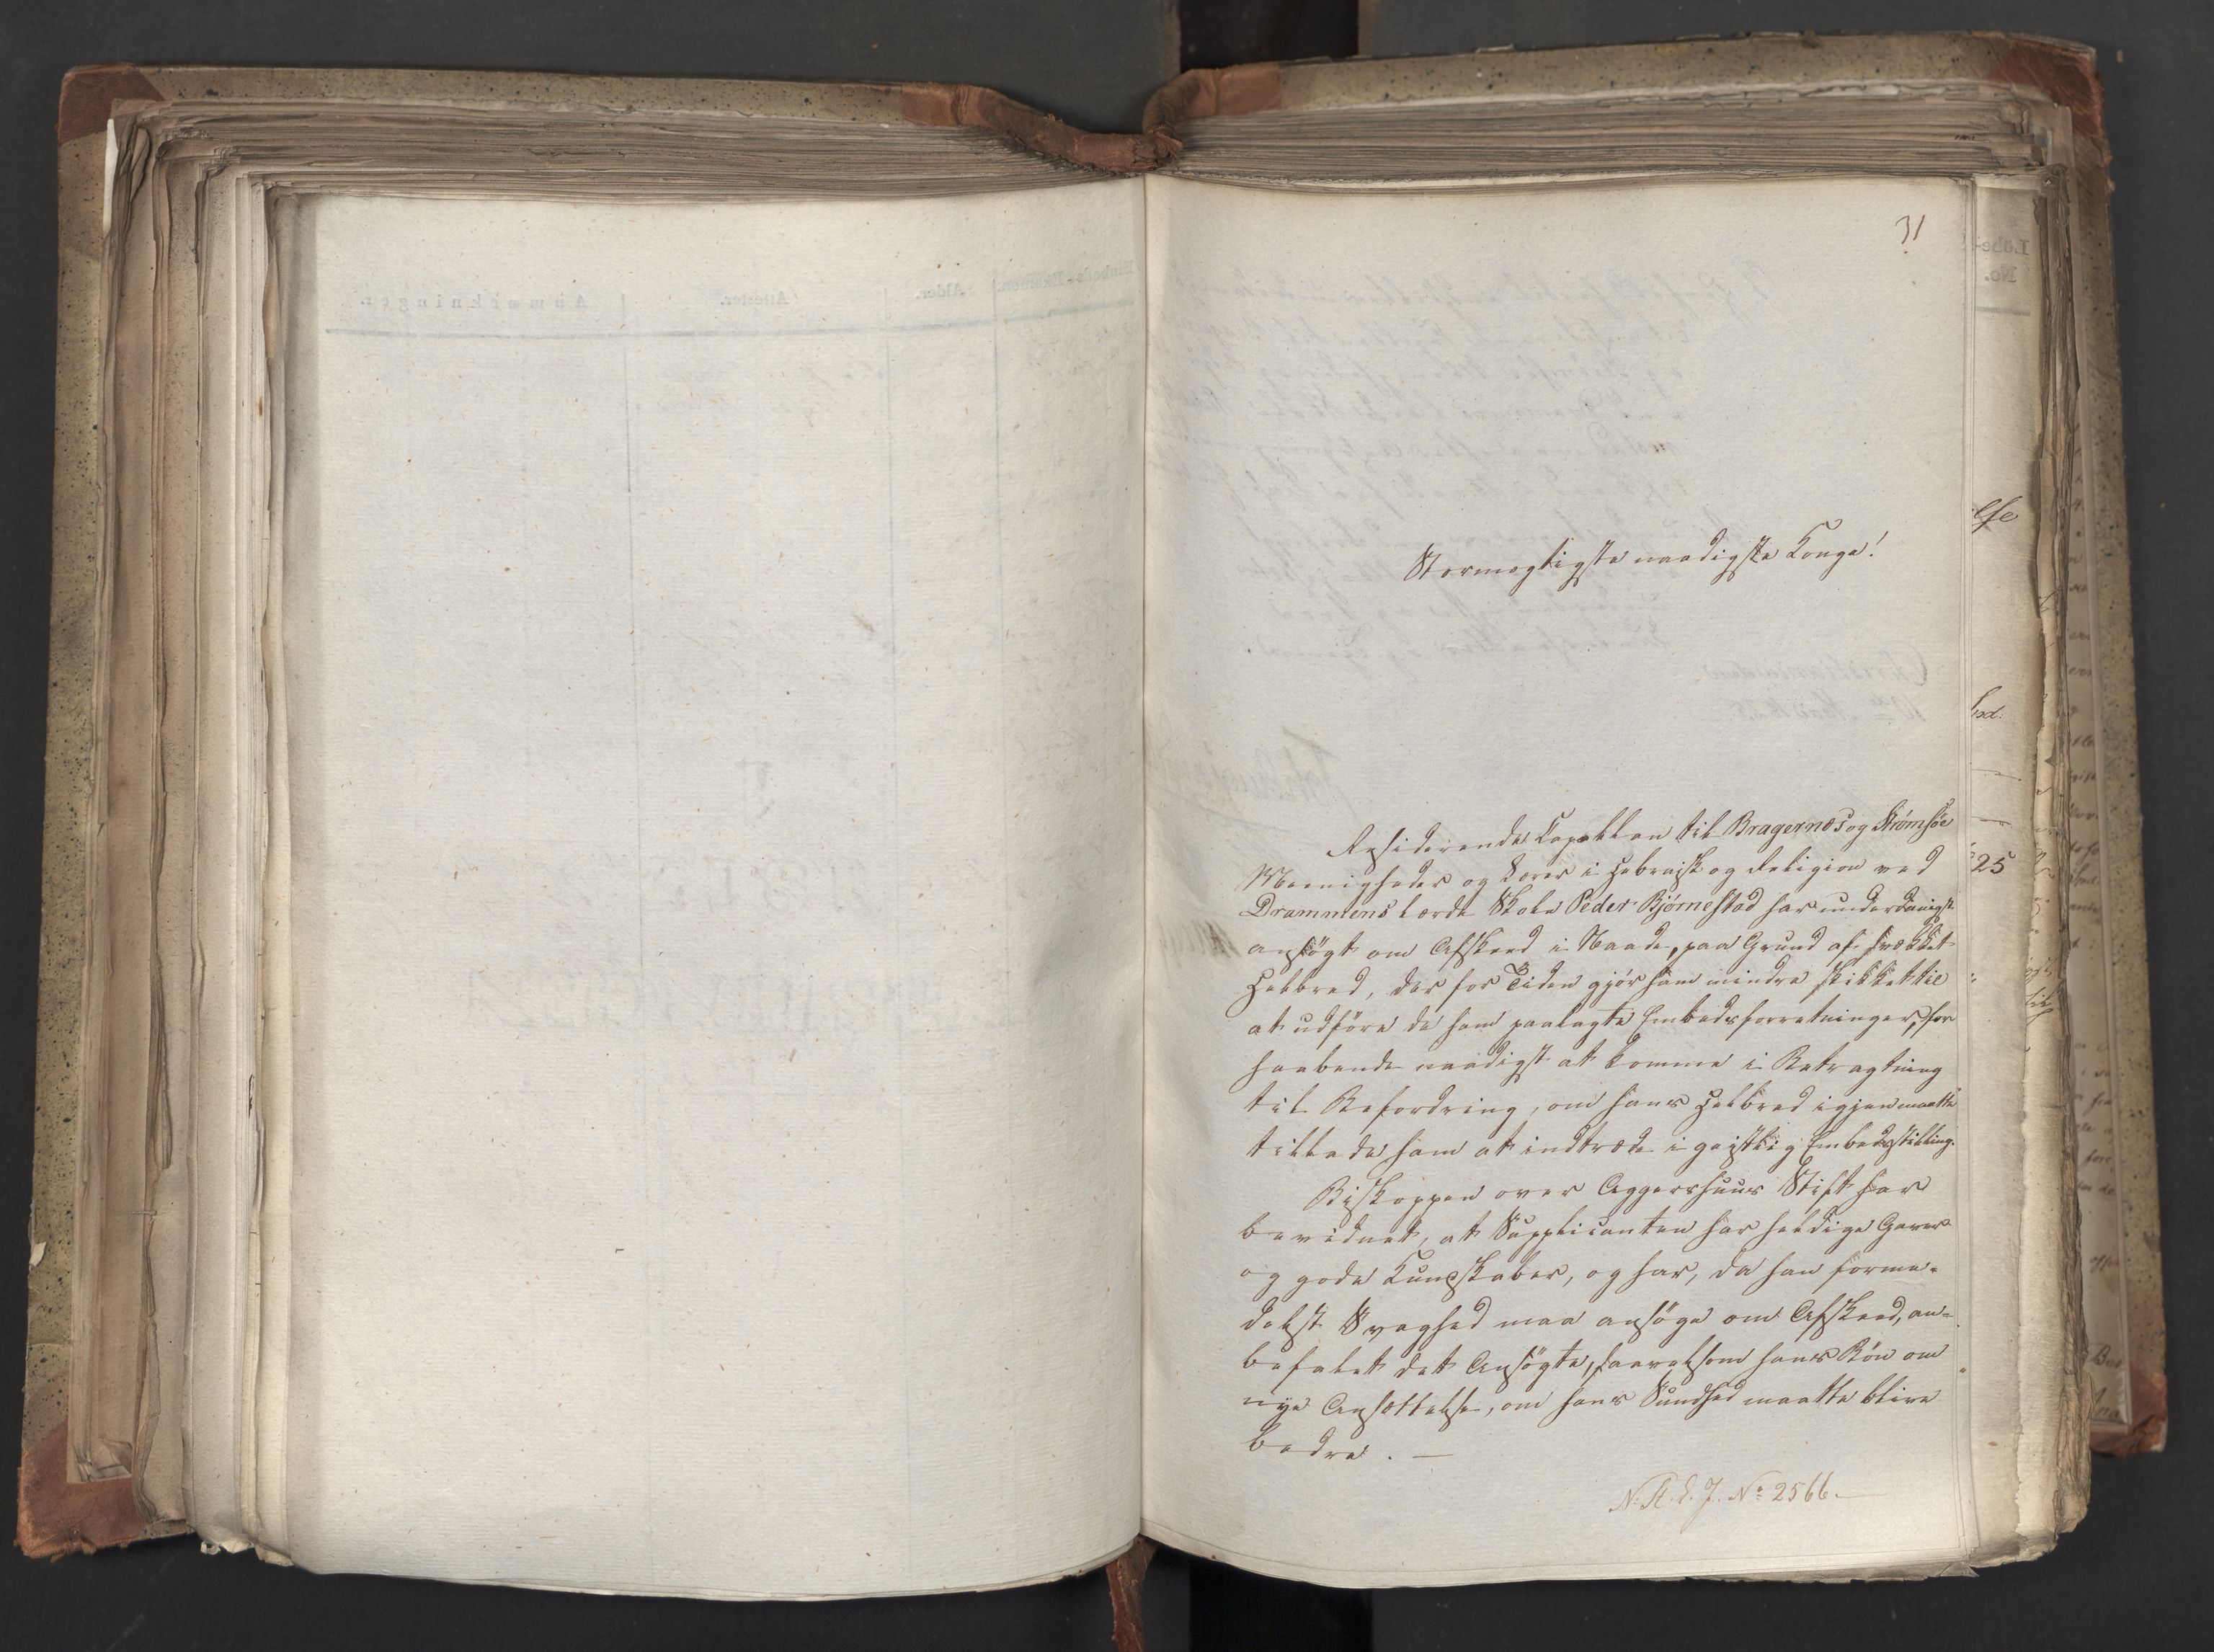 31
Stormægtigste naadigste Konge!
Residerende Capellan til Bragernes og Strømsøe
Menigheder og Lærer i Hebraisk og Religion ved
Drammens lærde Skole Peder Bjørnestad har underdanigst
ansögt om Afskeed i Naade, paa Grund af svækket
Helbred, der for Tiden gjör ham mindre skikket til
at udföre de ham paalagte Embedsforretninger, for
haabende naadigst at komme i Betragtning
til Befordring, om hans Helbred igjen maatte
tillade ham at indtræde i geistlig Embedsstilling.
Biskoppen over Aggershuus Stift har
bevidnet, at Supplicanten har heldige Gaver
og gode Kundskaber, og har, da han forme-
delst Svaghed maa ansöge om Afskeed, an-
befalet det Ansögte, saavelsom hans Bön om
nye Ansættelse, om hans Sundhed maatte blive
bedre. —
N. R. E. J. No 2566.
25